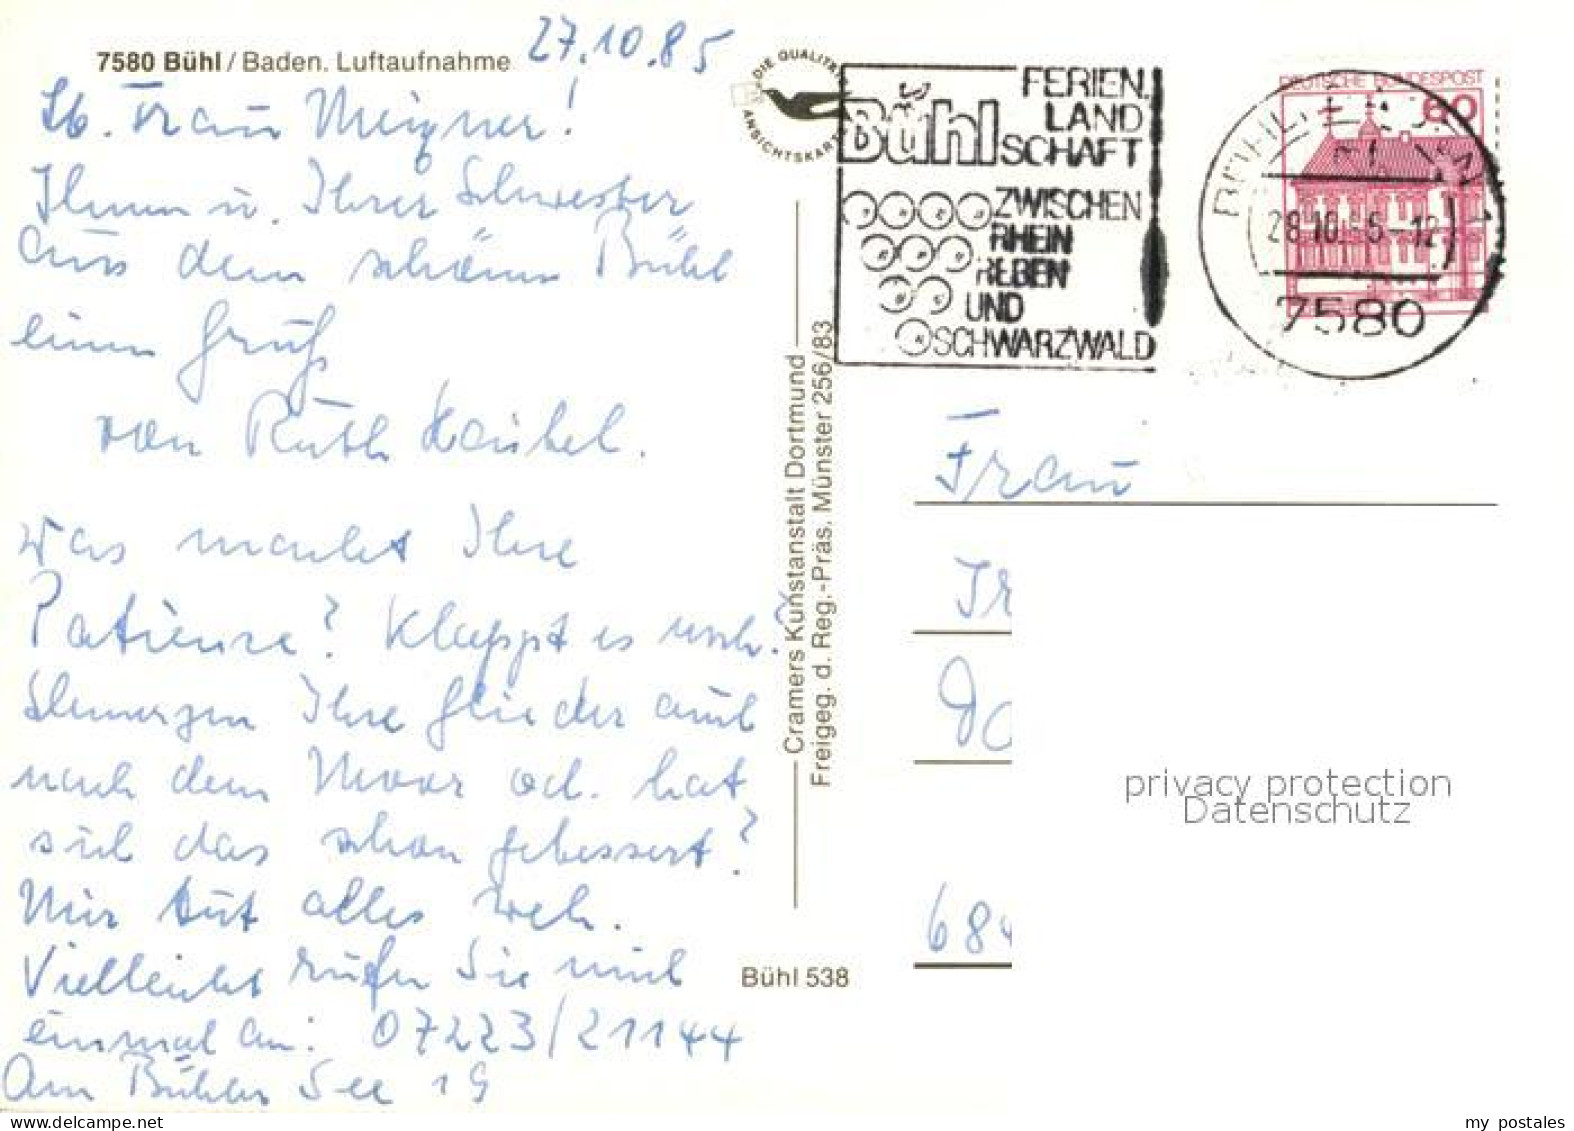 7580 Bühl / Baden. Luftaufnahme
27.10.85
Lb. Frau Meixner!
Ihnen u. Ihrer Schwester
aus dem schönen Bühl
einen Gruß
von Ruth
Was macht Ihre
Patience? Klappt es noch?
Schmerzen Ihre Glieder auch
nach dem Moor od. hat
sich das schon gebessert?
Mir tut alles weh.
Vielleicht rufen Sie mich
einmal an: 07223/21144
Am Bühler See 19
Cramers Kunstanstalt Dortmund
Freigeg. d. Reg.-Präs. Münster 256/83
Bühl 538
DIE QUALITÄTS
ANSICHTSKARTE
Bühl
FERIEN.
LAND
SCHAFT
ZWISCHEN
RHEIN
REBEN
UND
SCHWARZWALD
DEUTSCHE BUNDESPOST
60
28.10. 5-12
7580
Frau
Ir
Do
684
privacy protection
Datenschutz
my postales